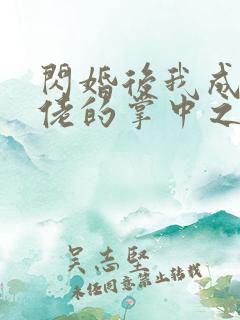 閃婚後我成
佬的掌中之
吴志堅
未任同意禁止转载